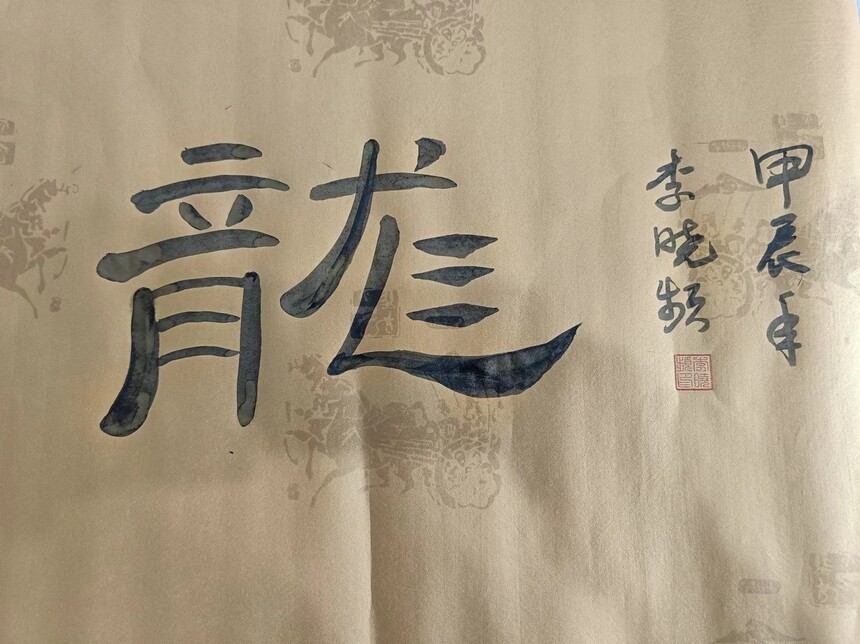 龍
甲辰年
李晓频